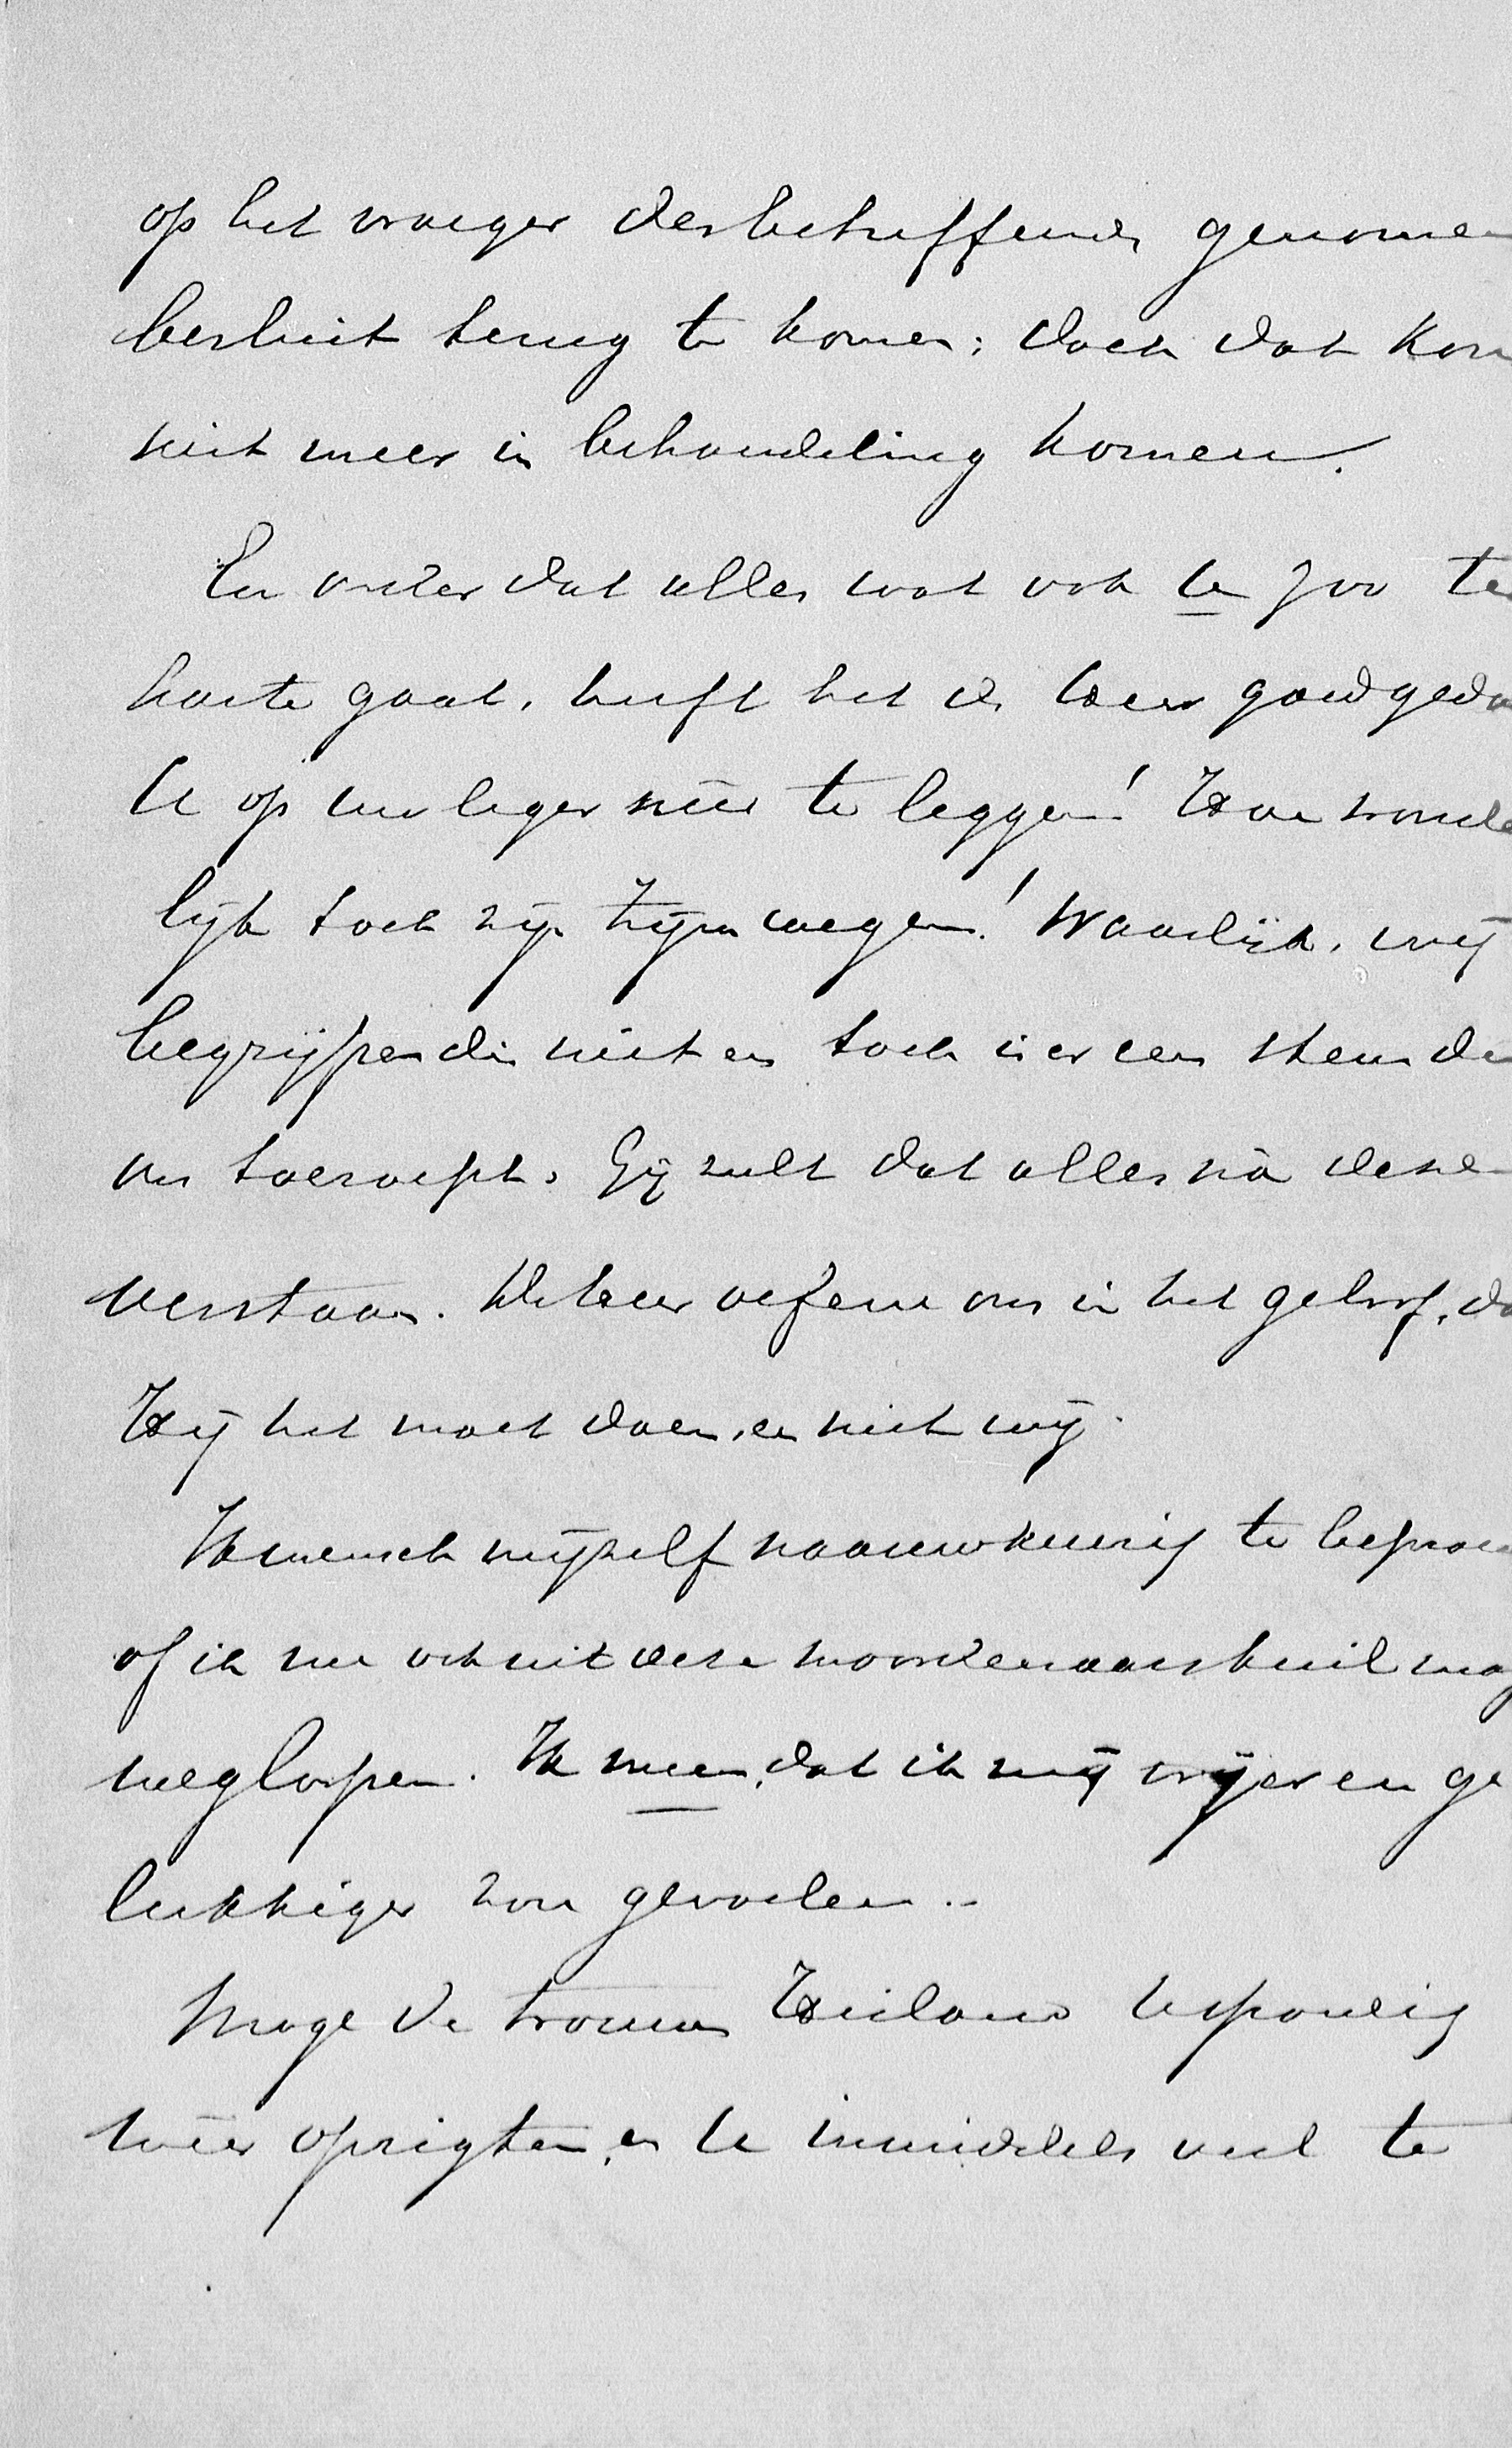 op het vroeger desbetreffende genomen
besluit terug te komen; doch dat kon
niet meer in behandeling komen.
En onder dat alles wat ook U zoo ter
harte gaat, heeft het de Heer goedgeda
U op uw leger neêr te leggen! Hoe wonde
lijk toch zijn Zijn wegen! Waarlijk, wij
begrijpen die niet en toch is er een stem die
ons toeroept: Gij zult dat alles nà dezen
verstaan. De Heer oefene ons in het geloof, da
Hij het moet doen, en niet wij.
Ik wensch mijzelf naauwkeurig te beproe
of ik nu ook uit deze moordenaarskuil mag
wegloopen. Ik meen, dat ik mij vrijer en ge
lukkiger zou gevoelen.
Moge de trouwe Heiland U spoedig
wêer oprigten, en U inmiddels veel te